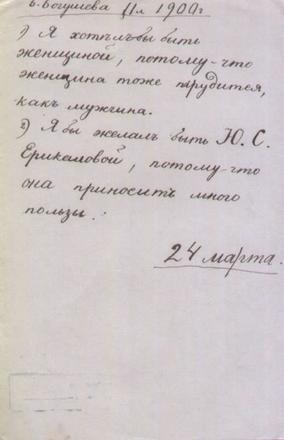 Е. Богушева 11л 1900г
1) Я хотѣлъбы быть
женщиной, потому-что
женщина тоже трудится,
какъ мужчина.
2) Я бы желалъ быть Ю. С.
Ерикаловой, потому-что
она приноситъ много
пользы.
24 марта.